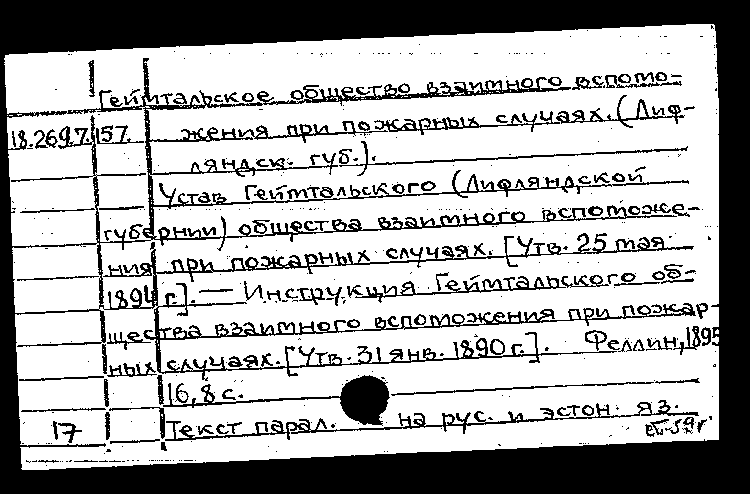 Геймтальское общество взаимного вспомо-
18.269.7.157. жения при пожарных случаях. (Лиф-
ляндск. губ.).
Устав Геймтальского (Лифляндской
губернии) общества взаимного вспоможе-
ния при пожарных случаях. [Утв. 25 мая
1894 г.]. — Инструкция Геймтальского об-
щества взаимного вспоможения при пожар-
ных случаях. [Утв. 31 янв. 1890 г.]. Феллин, 1895
16, 8 с.
17 Текст парал. на рус. и эстон. яз.